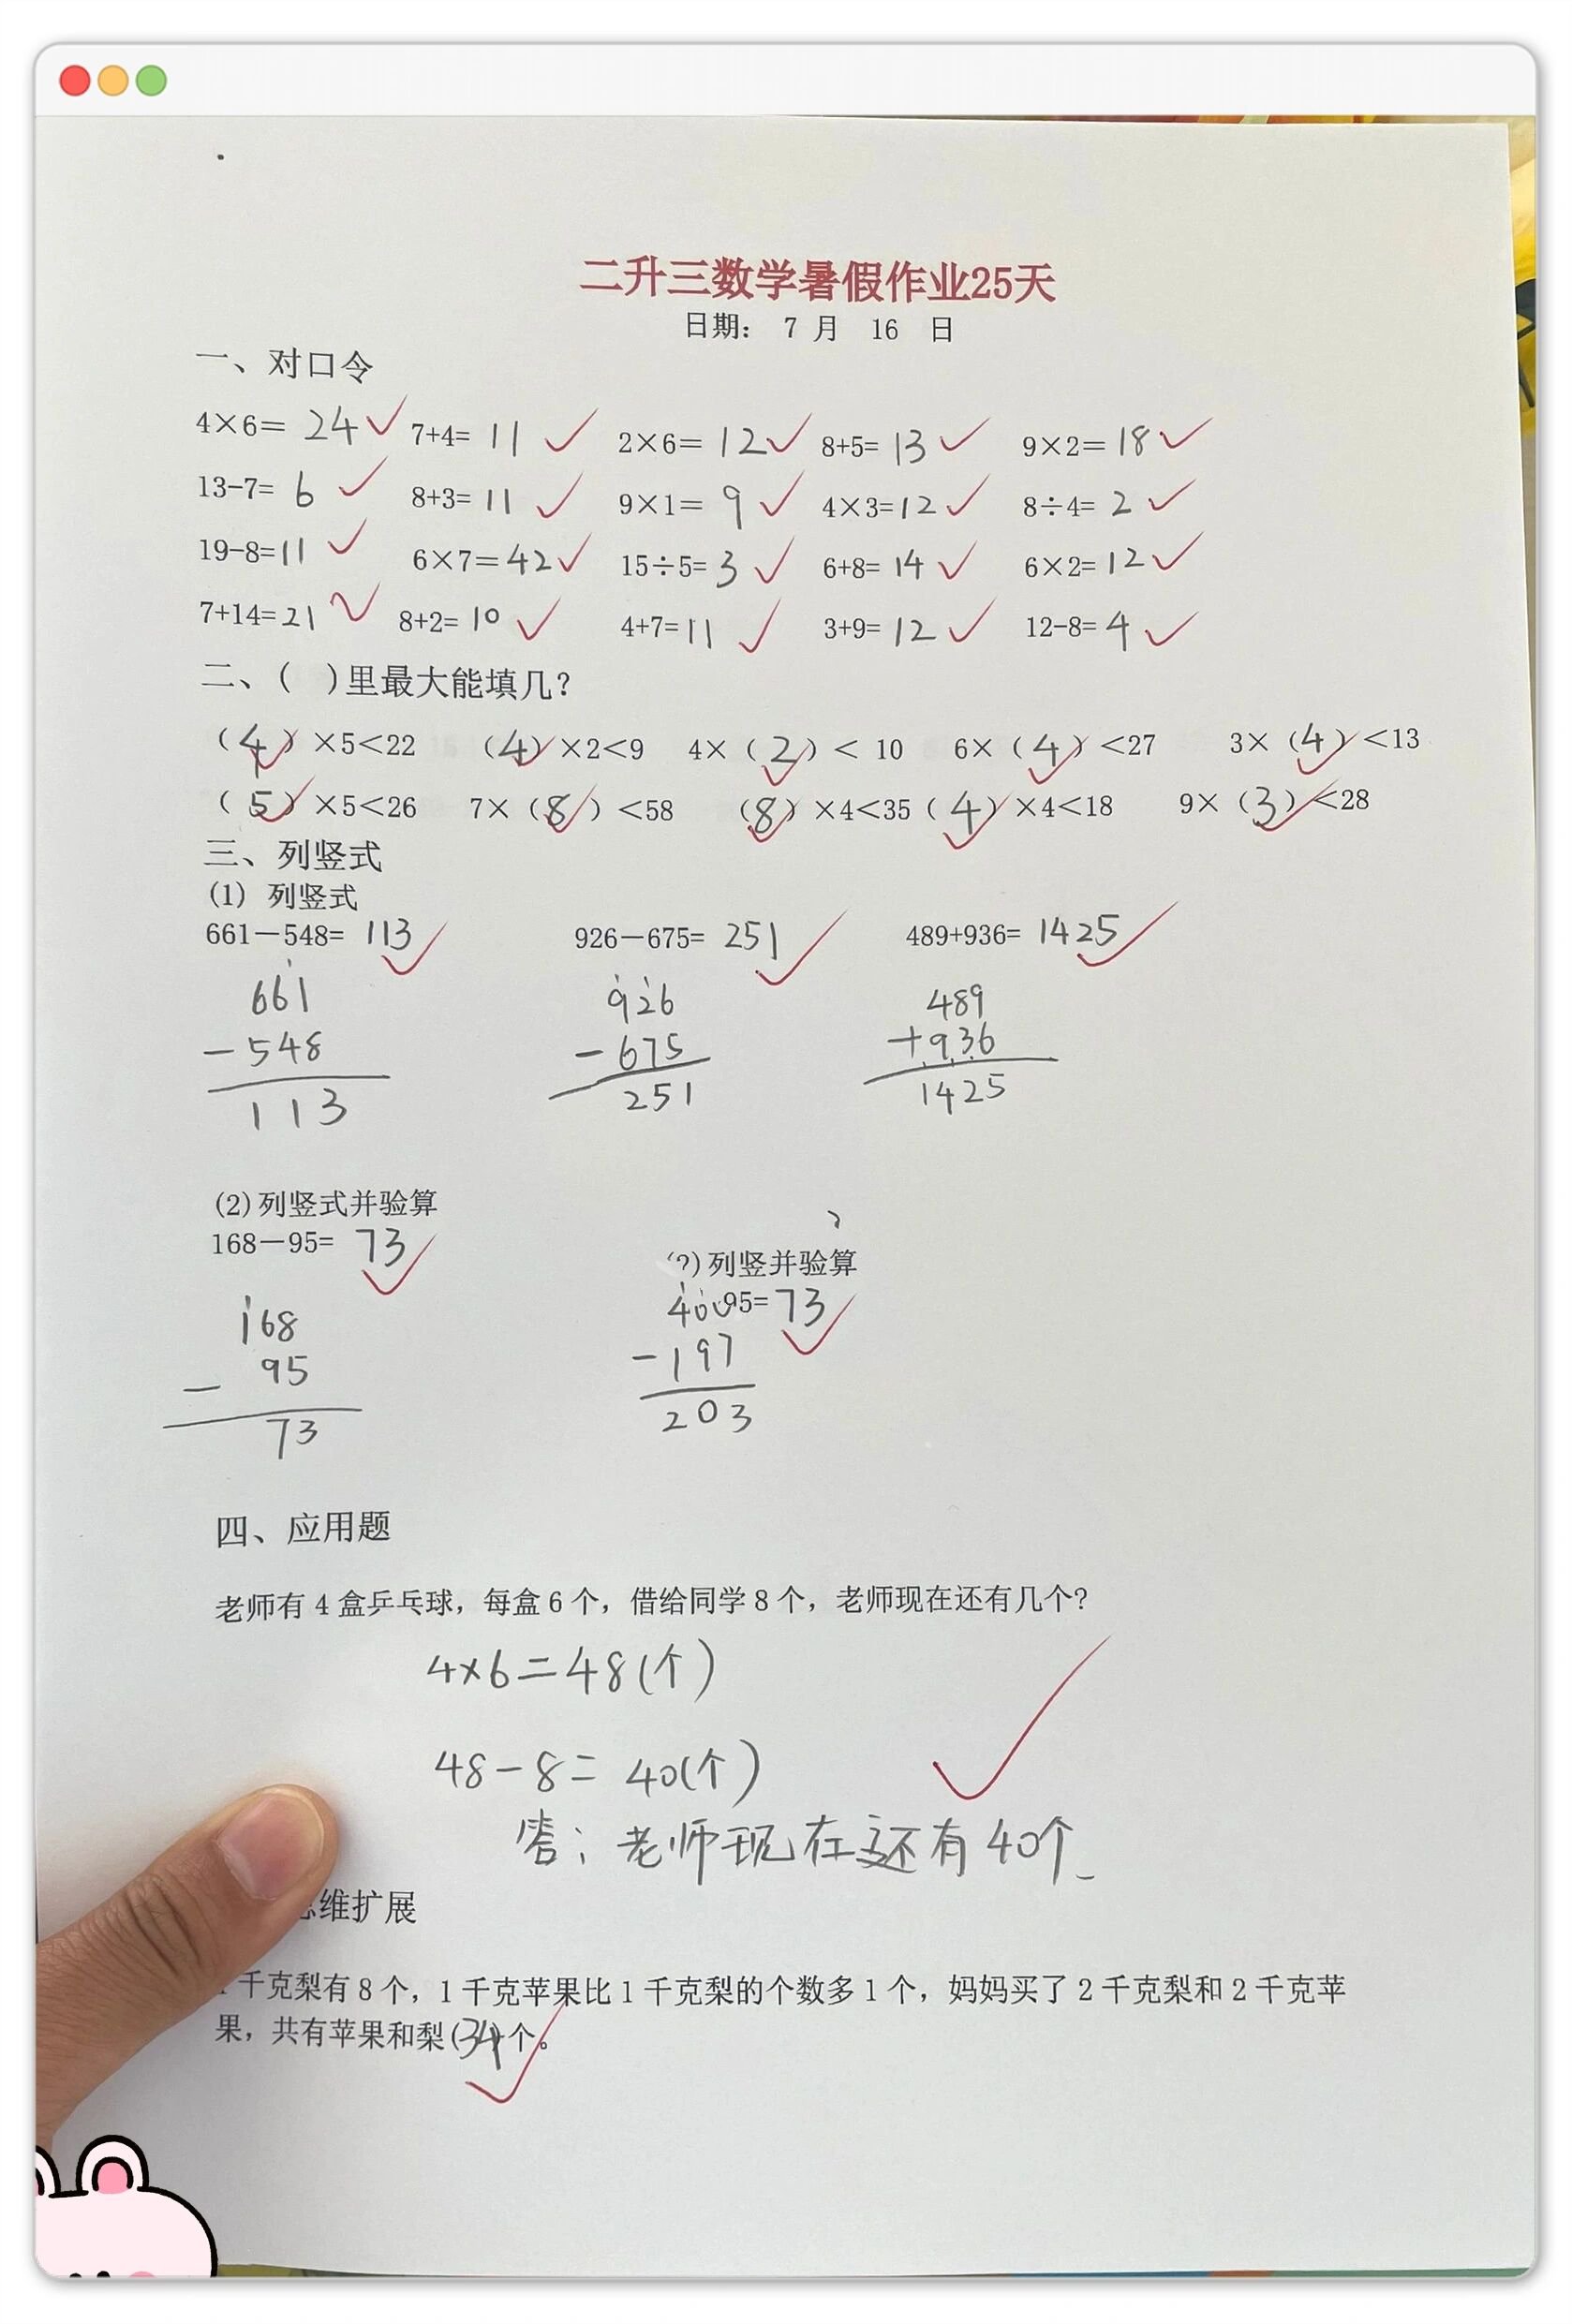 二升三数学暑假作业25天
日期： 7 月 16 日
一、对口令
4×6= 24 7+4= 11 2×6= 12 8+5= 13 9×2= 18
13-7= 6 8+3= 11 9×1= 9 4×3= 12 8÷4= 2
19-8= 11 6×7= 42 15÷5= 3 6+8= 14 6×2= 12
7+14= 21 8+2= 10 4+7= 11 3+9= 12 12-8= 4
二、( )里最大能填几?
（4）×5＜22 （4）×2＜9 4×（2）＜ 10 6×（4）＜27 3×（4）＜13
（5）×5＜26 7×（8）＜58 （8）×4＜35（4）×4＜18 9×（3）＜28
三、列竖式
(1) 列竖式
661－548= 113 926－675= 251 489+936= 1425
661 926 489
－548 －675 +936
113 251 1425
(2)列竖式并验算
168－95= 73
168
－ 95
73
2)列竖并验算
400 95= 73
－197
203
四、应用题
老师有 4 盒乒乓球，每盒 6 个，借给同学 8 个，老师现在还有几个?
4×6=48(个)
48-8= 40(个)
答：老师现在还有40个
维扩展
千克梨有 8 个，1 千克苹果比 1 千克梨的个数多 1 个，妈妈买了 2 千克梨和 2 千克苹
果，共有苹果和梨(34)个。